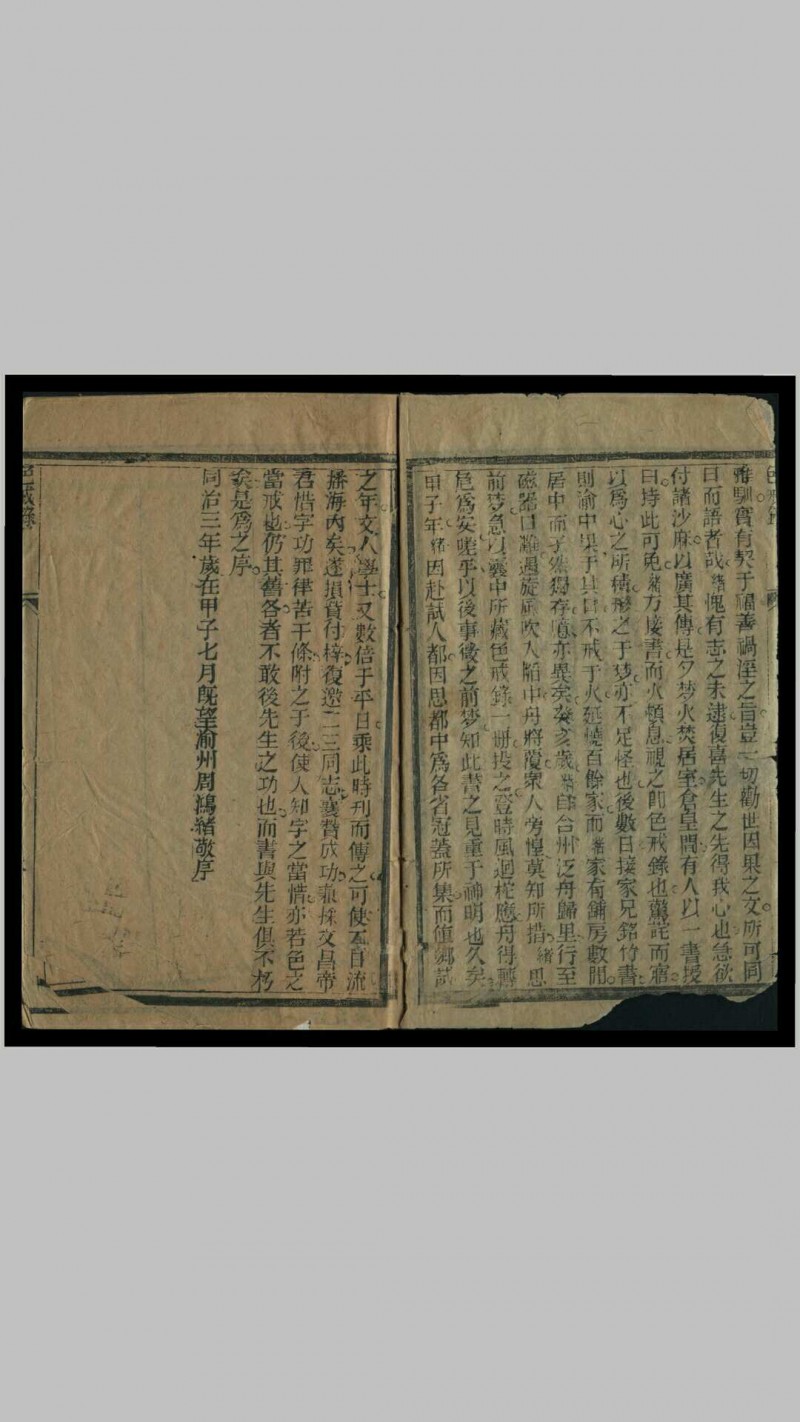 色戒錄
雅馴實有契于福善禍淫之旨豈一切勸世因果之文所可同
日而語者哉緒愧有志之未逮復喜先生之先得我心也急欲
付諸沙麻以廣其傳是夕夢火焚居室倉皇間有人以一書授
曰持此可免緒方接書而火頓息視之即色戒錄也驚詫而寤
以為心之所積形之于夢亦不足怪也後數日接家兄銘竹書
則渝中果于其日不戒于火延燒百餘家而緒家有舖房數間
居中而孑然獨存噫亦異矣癸亥歲緒自台州泛舟歸里行至
磁器口灘遇旋風吹入陷中舟將覆衆人旁惶莫知所措緒思
前夢急以囊中所藏色戒錄一册投之登時風迴柁應舟得轉
危為安嗟乎以後事徵之前夢知此書之見重于神明也久矣
甲子年緒因赴試入都因思都中為各省冠蓋所集而值鄉試
之年文人學士又數倍于平日乘此時刊而傳之可使不日流
播海內矣遂捐貲付梓復邀二三同志襄贊成功兼採文昌帝
君惜字功罪律若干條附之于後使人知字之當惜亦若色之
當戒也仍其舊名者不敢後先生之功也而書與先生俱不朽
矣是為之序
同治三年歲在甲子七月既望渝州周鴻緒敬序
色戒錄